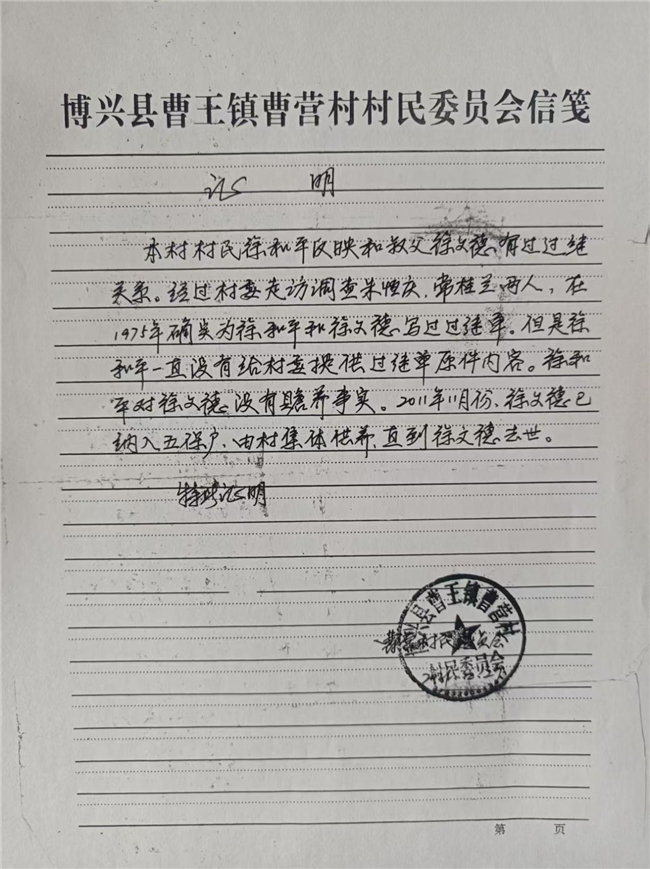 博兴县曹王镇曹营村村民委员会信笺
证 明
本村村民徐和平反映和叔父徐文德有过过继
关系。经过村委走访调查朱恒庆、常桂兰两人，在
1975年确实为徐和平和徐文德写过过继单。但是徐
和平一直没有给村委提供过继单原件内容。徐和
平对徐文德没有赡养事实。2011年11月份、徐文德已
纳入五保户、由村集体供养、直到徐文德去世。
特此证明
博兴县曹王镇曹营村
村民委员会
村民委员会
第 页